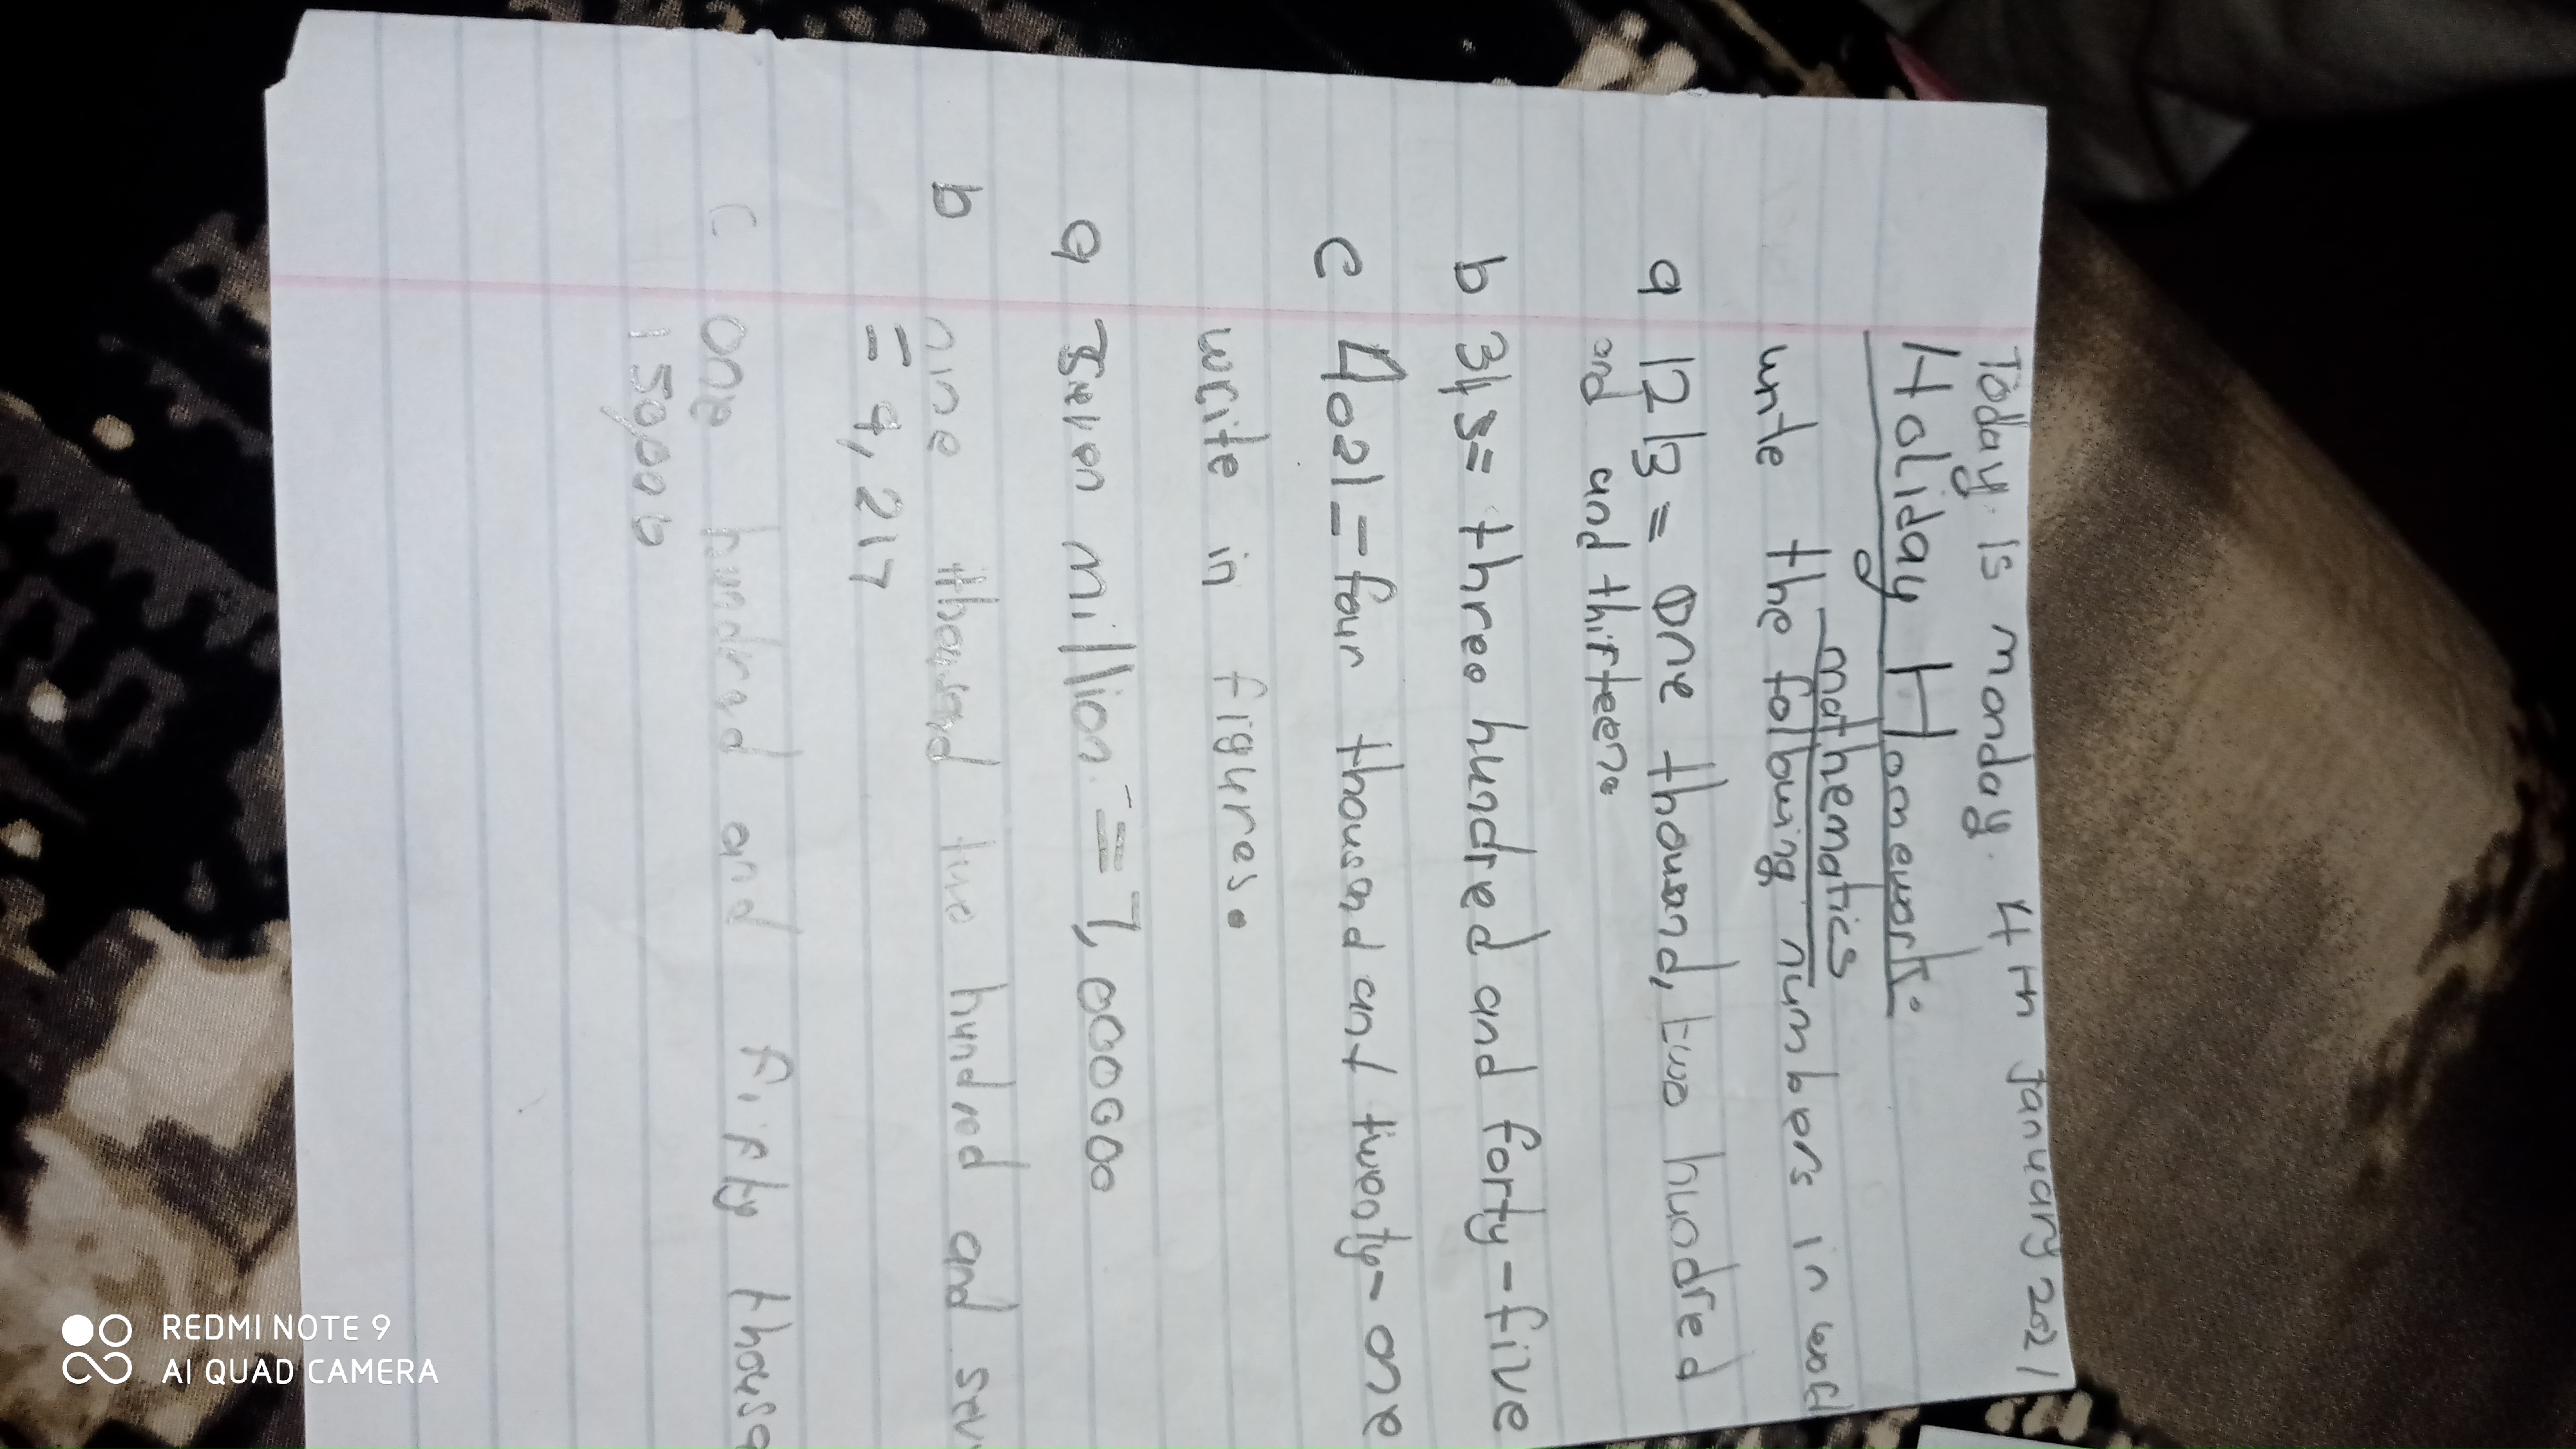 Today is monday 4th January 2021
Holiday Homework.
mathematics
write the following numbers in
a 1213 = One thousand, two hundred
and and thirteen.
b 345= three hundred and forty-five
c 4021 = four thousand and twenty-one
write in figures.
a Seven million = 7,000000
b nine thousand two hundred and sev
= 9,217
c One hundred and fifty thousa
150,000
REDMI NOTE 9
AI QUAD CAMERA